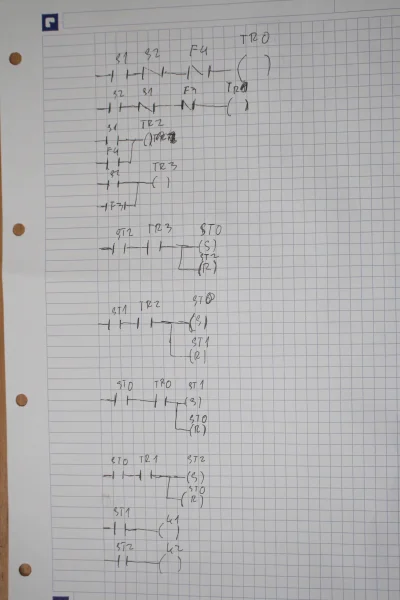 TR0
S1 S2 F4 ( )
S2 S1 F3 TR1 ( )
S1 TR2
F4 ( )
S2 TR3
F3 ( )
ST2 TR3 ST0
(S)
ST2
(R)
ST1 TR2 ST0
(S)
ST1
(R)
ST0 TR0 ST1
(S)
ST0
(R)
ST0 TR1 ST2
(S)
ST0
(R)
ST1 K1
( )
ST2 K2
( )